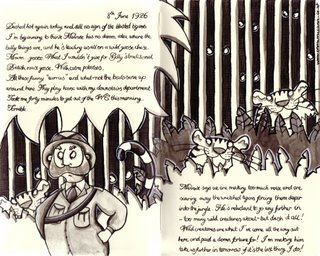 8th June 1926
Dashed hot again today and still no sign of the blasted tigers.
I'm beginning to think has no idea where the
bally things are, and he's leading us all on a wild goose chase.
Mmm... goose. What I wouldn't give for Billy
British roast goose. With cute potatoes.
All these funny "curries" and what-not the boys serve up
around here. Play havoc with my downstairs department.
Took me forty minutes to get out of the WC this morning.
Terrible.
says we are making too much noise and are
scaring away the wretched tigers, forcing them deeper
into the jungle. He's reluctant to go any further in
- too many wild creatures about - but dash it all!
Wild creatures are what I've come all the way out
here, and paid a damn fortune for! I'm making him
take us further in tomorrow if it's the last thing I do!